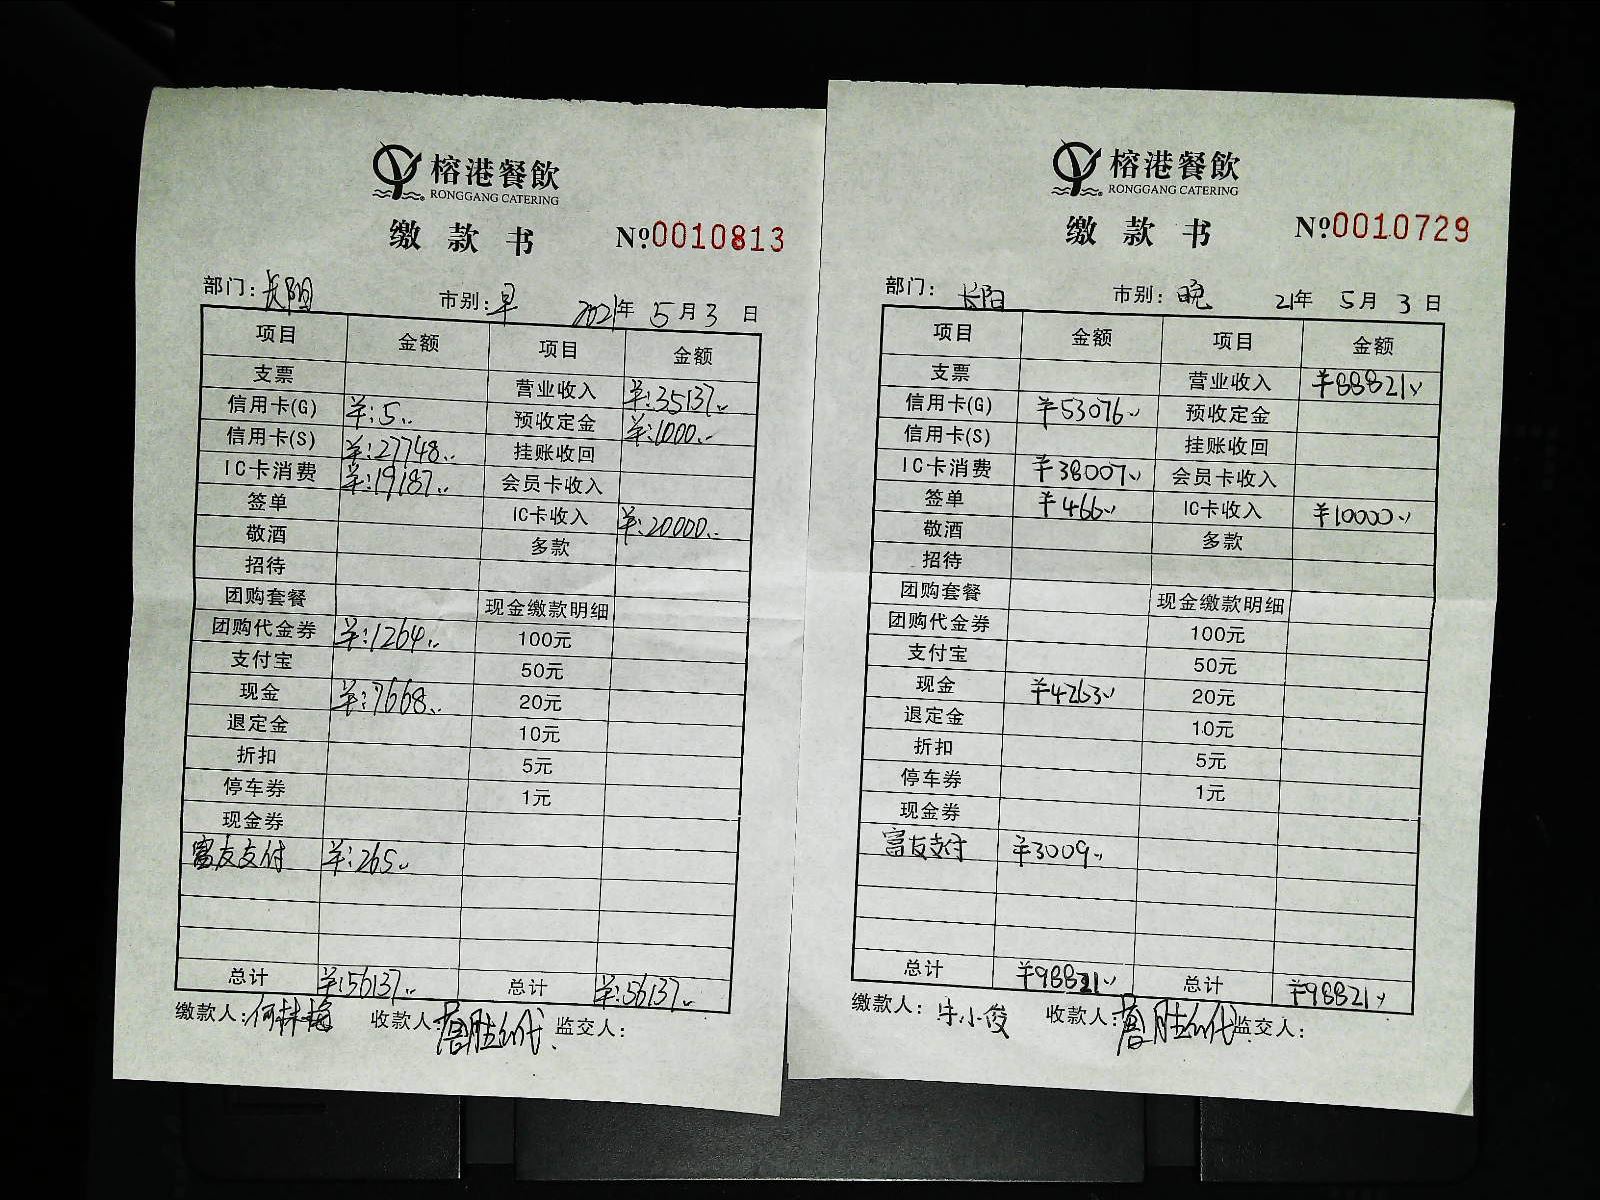 榕港餐飲
RONGGANG CATERING
缴款书 №0010813
部门：长阳 市别：早 2021年5月3日
项目 金额 项目 金额
支票 营业收入 ¥:35137..
信用卡(G) ¥:5.. 预收定金 ¥:1000..
信用卡(S) ¥:27748.. 挂账收回
IC卡消费 ¥:19187.. 会员卡收入
签单 IC卡收入 ¥:20000..
敬酒 多款
招待
团购套餐 现金缴款明细
团购代金券 ¥:1264.. 100元
支付宝 50元
现金 ¥:7668.. 20元
退定金 10元
折扣 5元
停车券 1元
现金券
富友支付 ¥:265..
总计 ¥:56137.. 总计 ¥:56137..
缴款人：何林梅 收款人： 监交人：
榕港餐飲
RONGGANG CATERING
缴款书 №0010729
部门：长阳 市别：晚 21年5月3日
项目 金额 项目 金额
支票 营业收入 ¥88821..
信用卡(G) ¥53076.. 预收定金
信用卡(S) 挂账收回
IC卡消费 ¥38007.. 会员卡收入
签单 ¥466.. IC卡收入 ¥10000..
敬酒 多款
招待
团购套餐 现金缴款明细
团购代金券 100元
支付宝 50元
现金 ¥4263.. 20元
退定金 10元
折扣 5元
停车券 1元
现金券
富友支付 ¥3009..
总计 ¥98821.. 总计 ¥98821..
缴款人：牛小俊 收款人： 监交人：